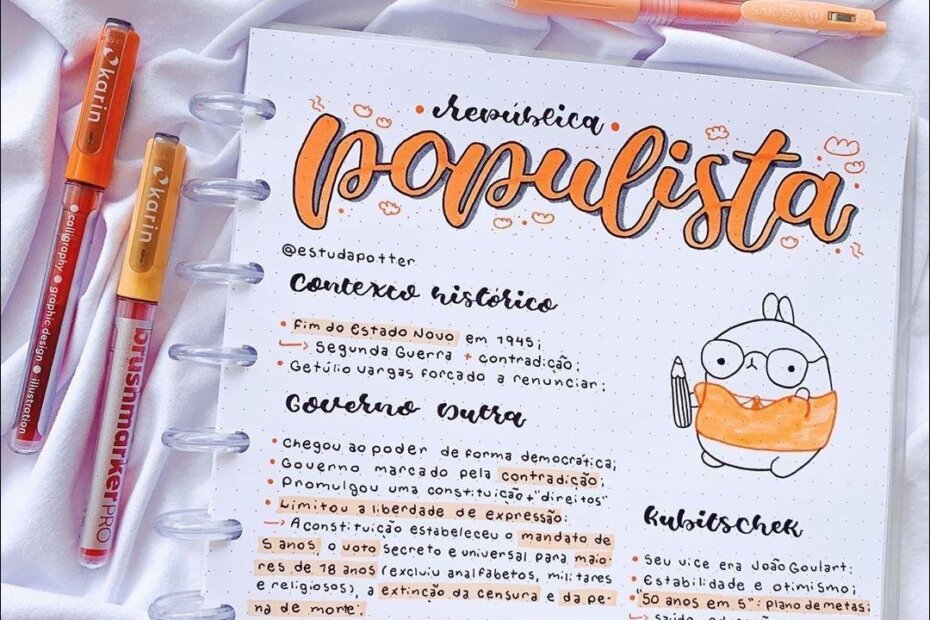 SARASA
karin
calligraphy • graphic design • illustration
karin
brushmarkerPRO
• república •
populista
@estudapotter
contexto histórico
• Fim do Estado Novo em 1945;
→ Segunda Guerra + contradição;
• Getúlio Vargas forçado a renunciar;
Governo Dutra
• Chegou ao poder de forma democrática;
• Governo marcado pela contradição;
• Promulgou uma constituição + "direitos"
• Limitou a liberdade de expressão:
→ A constituição estabeleceu o mandato de
5 anos, o voto secreto e universal para maio
res de 18 anos (excluiu analfabetos, militares
e religiosos), a extinção da censura e da pe-
na de morte;
Kubitschek
• Seu vice era João Goulart;
• Estabilidade e otimismo;
• "50 anos em 5": plano de metas;